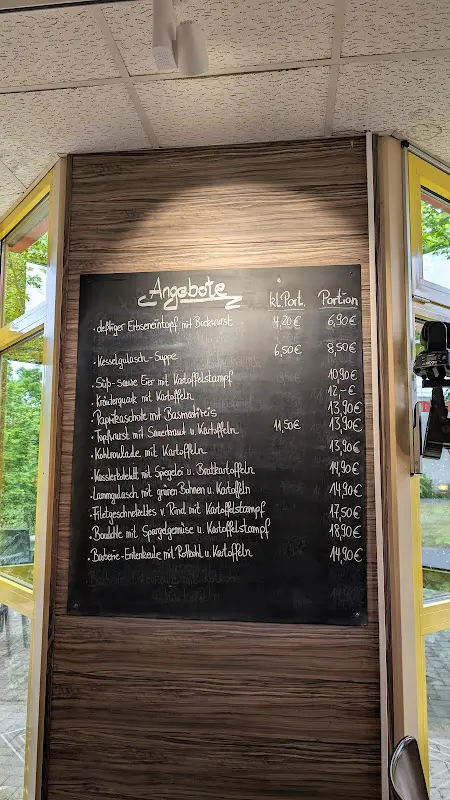 Angebote kl.Port. Portion
· deftiger Erbseneintopf mit Bockwurst 4,20 € 6,90 €
· Kesselgulasch - Suppe 6,50 € 8,50 €
· Süß-saure Eier mit Kartoffelstampf 10,90 €
· Kräuterquark mit Kartoffeln 12,- €
· Paprikaschote mit Basmatireis 13,90 €
· Topfwurst mit Sauerkraut u. Kartoffeln 11,50 € 13,90 €
· Kohlroulade mit Kartoffeln 13,90 €
· Kasslerkotelett mit Spiegelei u. Bratkartoffeln 14,90 €
· Lammgulasch mit grünen Bohnen u. Kartoffeln 14,90 €
· Filetgeschnetzeltes v. Rind mit Kartoffelstampf 17,50 €
· mit Spargelgemüse u. Kartoffelstampf 18,90 €
· Barberie-Entenkeule mit Rotkohl u. Kartoffeln 14,90 €